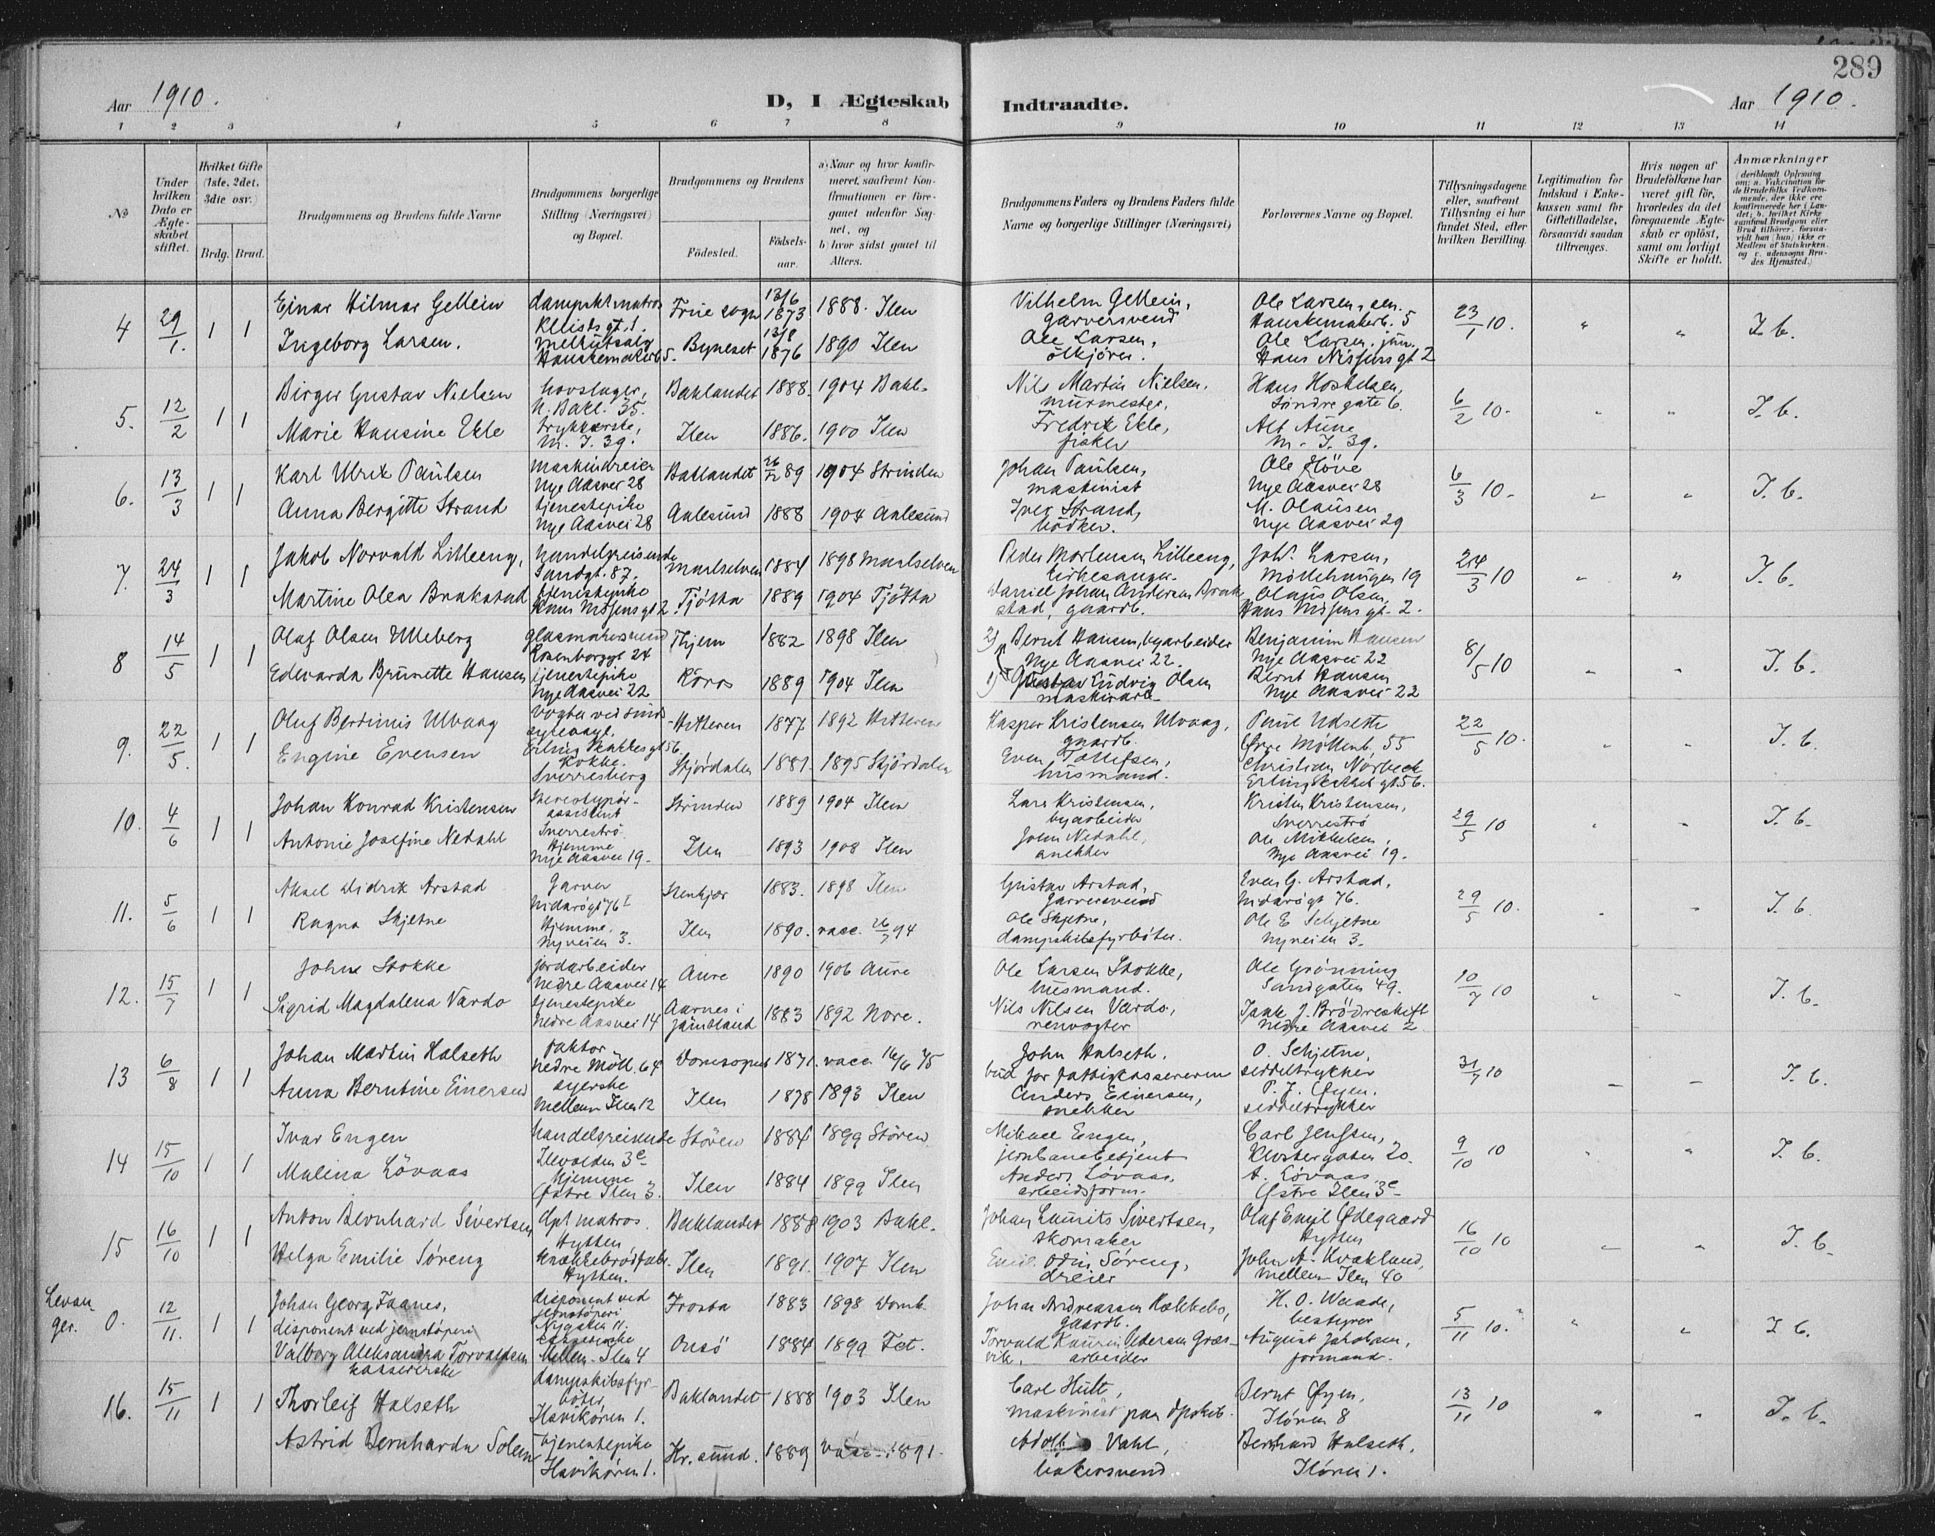 289
Aar 1910.
D, I Ægteskab Indtraadte.
Aar 1910.
1 2 3 4 5 6 7 8 9 10 11 12 13 14
No
Under hvilken Dato er Ægteskabet stiftet.
Hvilket Gifte (1ste, 2det, 3die osv.)
Brdg. Brud.
Brudgommens og Brudens fulde Navne
Brudgommens borgerlige Stilling (Næringsvei) og Bopæl.
Brudgommens og Brudens
Födested.
Födselsaar.
a) Naar og hvor konfirmeret, saafremt Konfirmationen er foregaaet udenfor Sognet, og
b) hvor sidst gaaet til Alters.
Brudgommens Faders og Brudens Faders fulde Navne og borgerlige Stillinger (Næringsvei)
Forlovernes Navne og Bopæl.
Tillysningsdagene eller, saafremt Tillysning ei har fundet Sted, efter hvilken Bevilling.
Legitimation for Indskud i Enkekassen samt for Giftetilladelse, forsaavidt saadan tiltrænges.
Hvis nogen af Brudefolkene har været gift för, hvorledes da det foregaaende Ægteskab er oplöst, samt om lovligt Skifte er holdt.
Anmærkninger
4 29/1. 1 1
Einar Hilmar Gellein
Ingeborg Larsen.
dampskl.matros
Kleists gt. 1.
melkutsalg
Hanskemakerb. 5.
Frue sogn 13/6 1873 1888. Ilen
Byneset 13/8 1876 1890 Ilen
Vilhelm Gellein,
garversvend
Ole Larsen,
ölkjörer.
Ole Larsen, sen.
Hanskemakerb. 5
Ole Larsen. jun.
Hans Nissens gt 2
23/1 10. " " I. b.
5. 12/2 1 1
Birger Gustav Nielsen
Marie Hansine Ekle
hovslager,
N. Bakl. 35.
trykkerske,
M. I. 39.
Baklandet 1888. 1904 Bakl.
Ilen 1886. 1900 Ilen
Nils Martin Nielsen.
murmester,
Fredrik Ekle,
fisker
Hans Hoskelsen,
Søndre gate 6.
Alt Aune
M. I. 39.
6/2 10. " " I. b.
6. 13/3 1 1
Karl Ulrik Paulsen
Anna Bergitte Strand
maskindreier
Nye Aasvei 28
tjenestepike
Nye Aasvei 28
Baklandet 26/2 89 1904 Strinden
Aalesund 1888 1904 Aalesund
Johan Paulsen,
maskinist
Iver Strand,
bödker.
Ole Höve
Nye Aasvei 28
M. Olausen
Nye Aasvei 29
6/3 10. " " I. b.
7. 24/3 1 1
Jakob Norvald Lilleeng,
Martine Olea Brakstad
handelsreisende
Sandgt. 87.
tjenestepike
Hans Nissens gt 2
Maalselven 1884 1898 Maalselven
Tjötta 1889 1904 Tjötta
Peder Mortensen Lilleeng,
kirkesanger.
Daniel Johan Andersen Brak
stad, gaardb.
Joh. Larsen,
Möllehaugen 19
Olajs Olsen,
Hans Nissens gt. 2.
24/3 10 " " I. b.
8 14/5 1 1
Olaf Olsen Ulleberg
Edevarda Brunette Hansen
glasmakersvend
Rosenborggt 24
tjenestepike
Nye Aasvei 22
Thjem 1882 1898 Ilen
Röros 1889 1904 Ilen
2) Bernt Hansen, byarbeider
Nye Aasvei 22.
1) Gustav Ludvig Olsen
maskinarb.
Benjamin Hansen
Nye Aasvei 22
Bernt Hansen
Nye Aasvei 22
8/5 10 " " I. b.
9. 22/5. 1 1
Oluf Berdinis Ulvaag
Engine Evensen
vogter ved sinds
sykeasyl.
Erling Skakkes gt 56.
Kokke.
Sverresberg
Hitteren 1877 1892 Hitteren
Stjördalen 1881 1895 Stjördalen
Kaspar Kristensen Ulvaag,
gaardb.
Even Tollefsen,
husmand.
Paul Udseth
Övre Möllenb. 55
Christian Norbeck
Erling Skakkes gt 56.
22/5 10. " " I. b.
10. 4/6 1 1
Johan Konrad Kristensen
Antonie Josefine Nedahl
Stereotypör-
assistent
Sverrestrø
Hjemme
Nye Aasvei 19.
Strinden 1889 1904 Ilen
Ilen 1893 1908 Ilen
Lars Kristensen,
byarbeider
John Nedahl,
snekker
Kristen Kristensen,
Sverrestrø
Ole Mikkelsen,
Nye Aasvei 19.
29/5 10 " " I. b.
11. 5/6 1 1
Aksel Didrik Arstad
Ragna Skjetne
Garver
Nidarösgt 76 I
Hjemme,
Nyveien 3.
Stenkjær 1883. 1898 Ilen
Ilen 1890. vacc. 26/7 94
Gustav Arstad,
garversvend
Ole Skjetne,
dampskibsfyrböter.
Even G. Arstad,
Nidarösgt 76.
Ole E. Schjetne
Nyveien 3.
29/5 10. " " I. b.
12. 15/7 1 1
John Stokke
Sigrid Magdalena Vardo
jordarbeider
Nedre Aasvei 14
tjenestepike
Nedre Aasvei 14
Aure 1890 1906 Aure
Aarnes i
Jämtland 1883 1892 Nore.
Ole Larsen Stokke,
husmand.
Nils Nilsen Vardo,
renvogter
Ole Grönning
Sandgaten 49.
Isak J. Brödreskift
Nedre Aasvei 2
10/7 10 " " I. b.
13 6/8 1 1
Johan Martin Halseth
Anna Berntine Einersen
faktor
Nedre Möll. 64
syerske
Mellem Ilen 12
Domsognet 1871. vacc. 16/6 75
Ilen 1878 1893 Ilen
John Halseth.
bud for fattigkassereren
Anders Einersen,
snekker
O. Schjetne,
siddeltrykker
P. J. Öyen.
siddeltrykker
31/7 10 " I. b.
14 15/10 1 1
Ivar Engen
Malina Lövaas
handelsreisende
Ilevolden 3c
Hjemme
Østre Ilen 3.
Stören 1884 1899 Stören
Ilen 1884 1899 Ilen
Mikael Engen,
jernbanebetjent
Anders Lövaas,
arbeidsform.
Carl Jenssen,
Klostergaten 20.
A. Lövaas
Østre Ilen 3c
9/10 10 " " I. b.
15 16/10 1 1
Anton Bernhard Sivertsen
Helga Emilie Søreng
dpt matros.
Hytten
Knækkebrödfabr.
Hytten.
Baklandet 1888 1903 Bakl.
Ilen 1891. 1907 Ilen
Johan Laurits Sivertsen,
skomaker
Emil Odin Søreng,
dreier
Olaf Emil Ødegaard
Hytten
John A. Kvakland,
Mellem Ilen 40
16/10 10 " I. b.
Levan-
ger.
0. 12/11. 1 1
Johan Georg Faanes,
disponent ved jernstöperi
Valborg Aleksandra Torvaldsen
kassererske
disponent ved
jernstöperi
Nygaten 11.
kassererske
Mellem Ilen 4
Frosta 1883 1898 Domk.
Onsö 1884 1899 Fet.
Johan Andreassen Hækkebo,
gaardb.
Torvald Laurin Pedersen Græs-
vik, arbeider
H. O. Waade,
bestyrer
August Jakobsen,
formand.
5/11 10. " " I. b.
16. 15/11 1 1
Thorleif Halseth
Astrid Bernharda Solem
dampskibsfyr-
böter,
Ilsvikören 1.
tjenestepike
Ilsvikören 1.
Baklandet 1888 1903 Ilen
Kr. sund. 1889 vacc. 1891.
Carl Hult,
maskinist paa dpskib.
Adolf Vahl,
bakersvend
Bernt Øyen,
Ilören 8
Bernhard Halseth,
Ilören 1.
13/11 10 " " I. b.